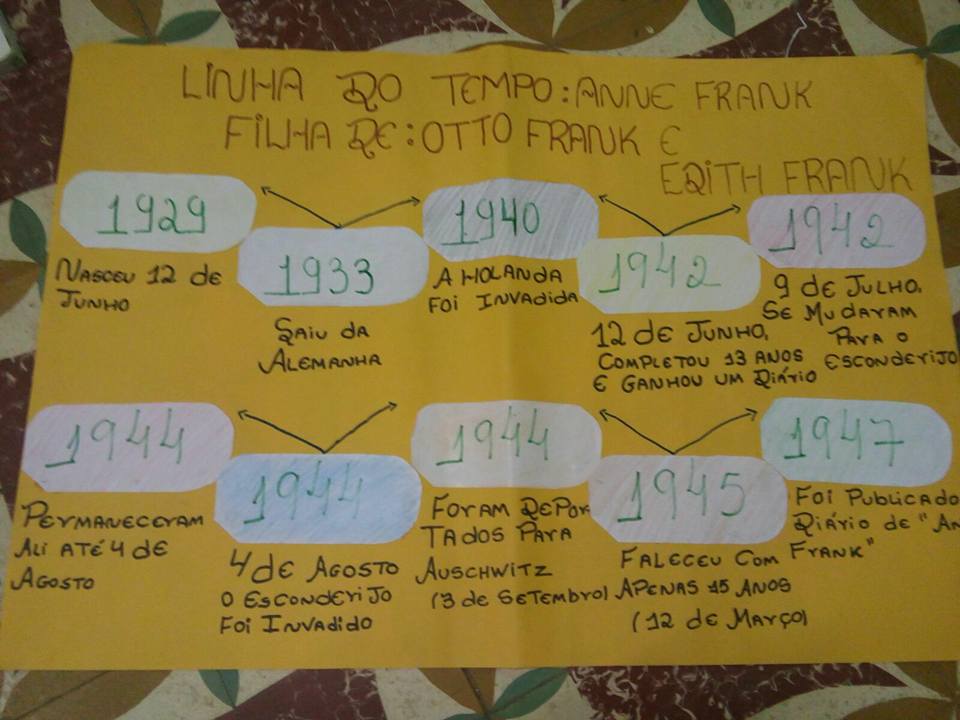 LINHA DO TEMPO: ANNE FRANK
FILHA DE: OTTO FRANK E
EDITH FRANK
1929
NASCEU 12 DE
JUNHO
1933
SAIU DA
ALEMANHA
1940
A HOLANDA
FOI INVADIDA
1942
12 DE JUNHO,
COMPLETOU 13 ANOS
E GANHOU UM DIÁRIO
1942
9 DE JULHO,
SE MUDARAM
PARA O
ESCONDERIJO
1944
PERMANECERAM
ALI ATÉ 4 DE
AGOSTO
1944
4 DE AGOSTO
O ESCONDERIJO
FOI INVADIDO
1944
FORAM DEPOR
TADOS PARA
AUSCHWITZ
(3 DE SETEMBRO)
1945
FALECEU COM
APENAS 15 ANOS
(12 DE MARÇO)
1947
FOI PUBLICADO
DIÁRIO DE "AN
FRANK"